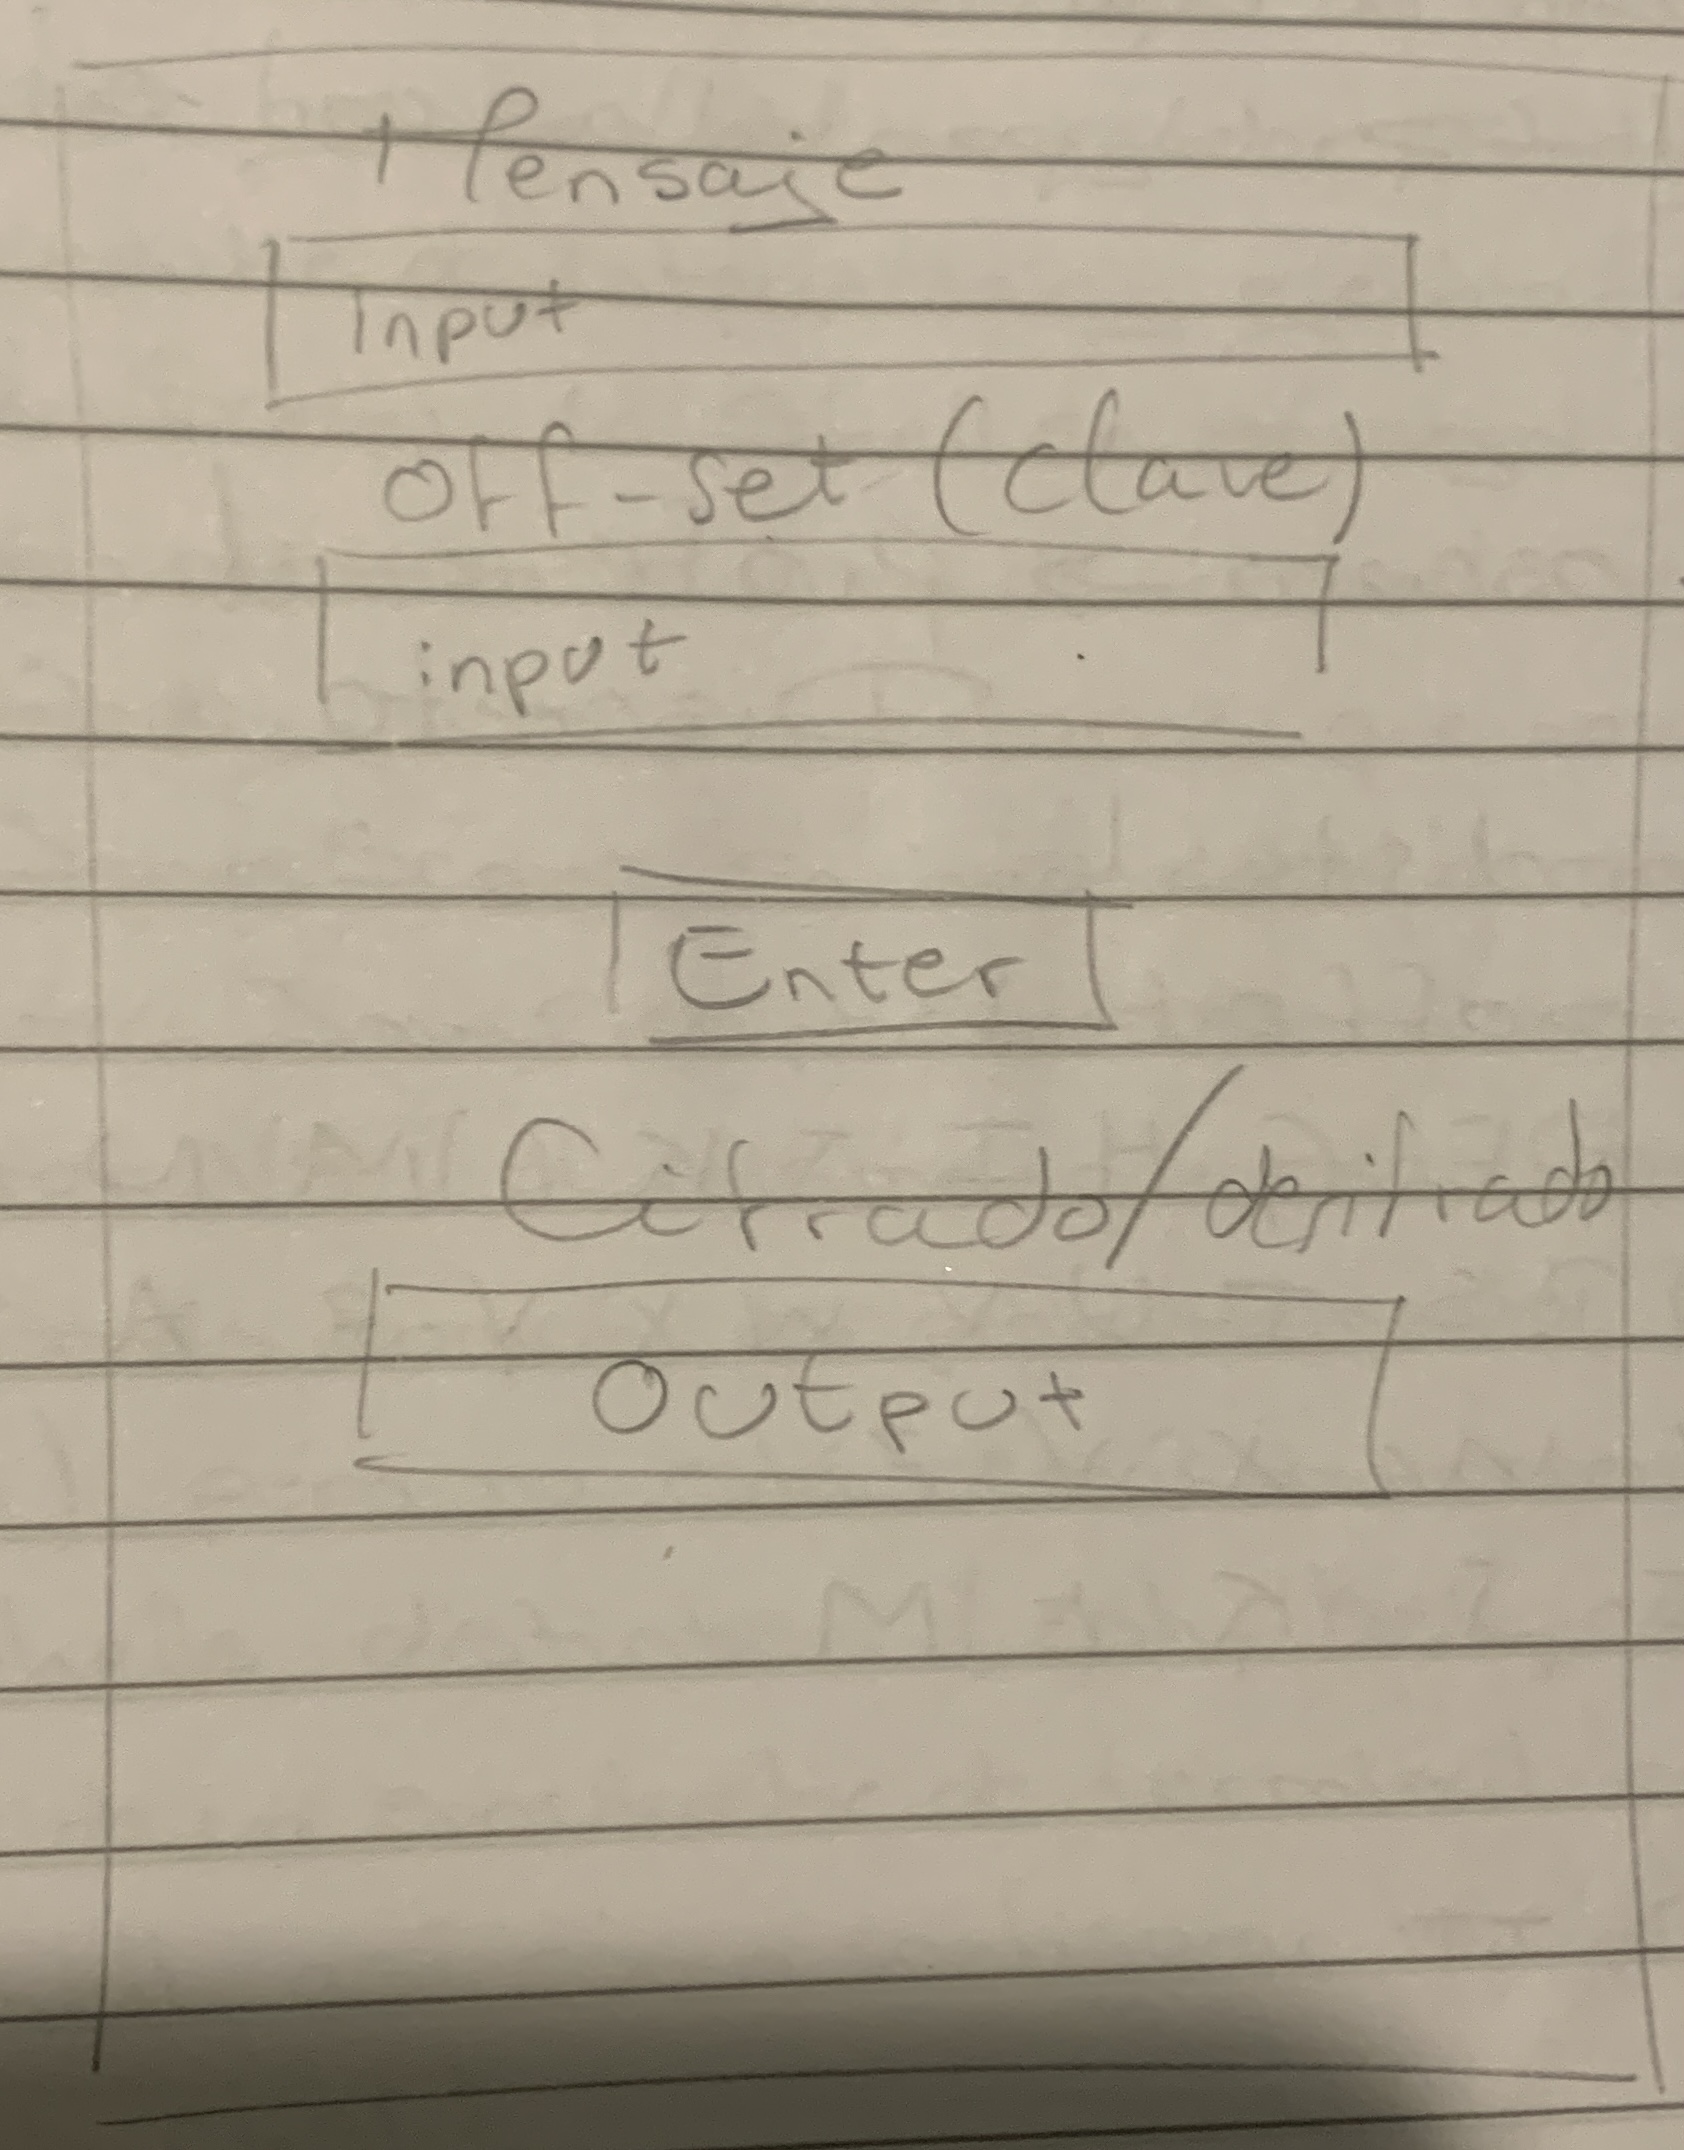 Mensaje
input
off-set (clave)
input
Enter
Cifrado/descifrado
Output